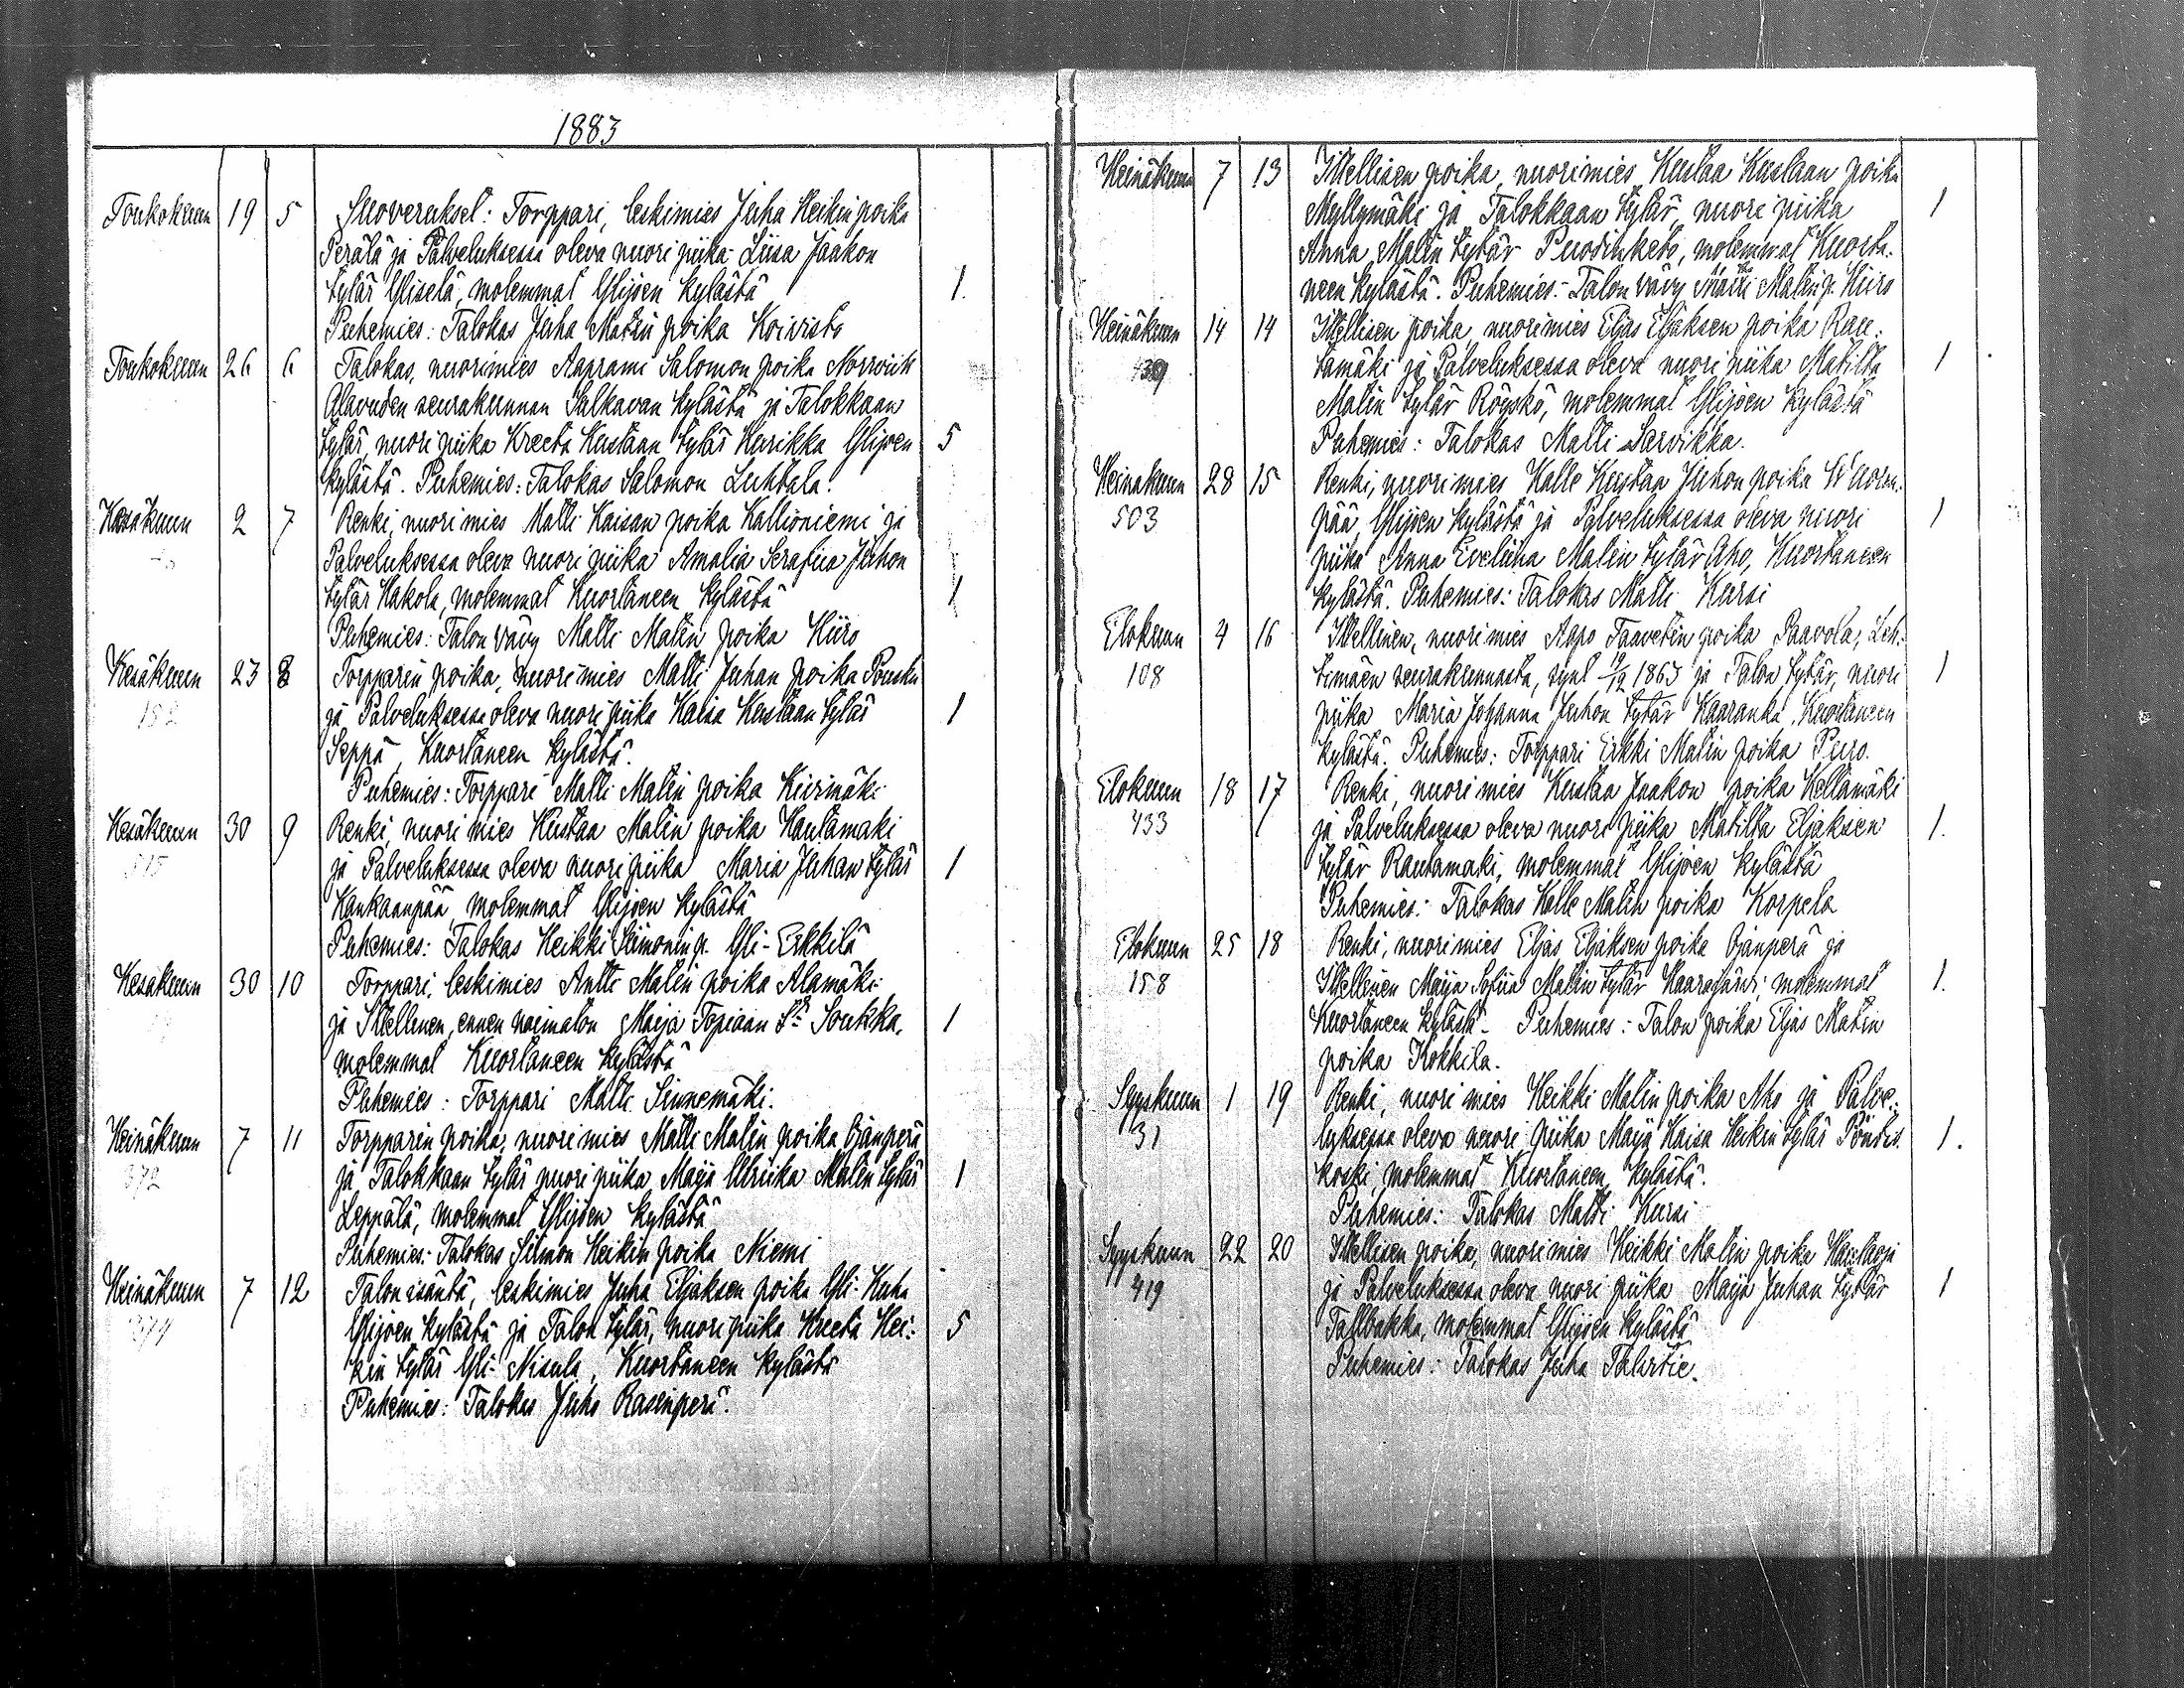 1883
Toukokuun 19 5 Suoveruksel: Torppari, leskimies Juha Heikin poika
Perälä ja Palveluksessa oleva nuori piika Liisa Jaakon
tytär Yliselä, molemmat Ylijoen kylästä 1.
Puhemies: Talokas Juha Matin poika Koivisto
Toukokuun 26 6 Talokas, nuorimies Aaprami Salomon poika Norrvik
Alavuden seurakunnan Salkavan kylästä ja Talokkaan
tytär, nuori piika Kreeta Kustaan tytär Hurikka Ylijoen 5
kylästä. Puhemies: Talokas Salomon Luhtala.
Kesäkuun 2 7 Renki, nuorimies Matti Kaisan poika Kallioniemi ja
Palveluksessa oleva nuori piika Amalia Serafia Juhon
tytär Hakola, molemmat Kuortaneen kylästä 1
Puhemies: Talon vävy Matti Matin poika Kiiro
Kesäkuun 23 8 Torpparin poika, nuorimies Matti Juhan poika Pouttu
182 ja Palveluksessa oleva nuori piika Kaisa Kustaan tytär 1
Seppä, Kuortaneen kylästä.
Puhemies: Torppari Matti Matin poika Kiirimäki
Kesäkuun 30 9 Renki, nuori mies Kustaa Matin poika Hautamäki
515 ja Palveluksessa oleva nuori piika Maria Juhan tytär 1
Kankaanpää, molemmat Ylijoen kylästä
Puhemies: Talokas Heikki Siimonin p. Yli-Erkkilä
Kesäkuun 30 10 Torppari, leskimies Antti Matin poika Alamäki
ja Itellinen, ennen naimaton Maija Topiaan tr Soukka, 1
molemmat Kuortaneen kylästä
Puhemies: Torppari Matti Sinnemäki.
Heinäkuun 7 11 Torpparin poika, nuori mies Matti Matin poika Ojanperä
372 ja Talokkaan tytär nuori piika Maija Ulriika Matin tytär 1
Leppälä, molemmat Ylijoen kylästä
Puhemies: Talokas Siimon Heikin poika Niemi
Heinäkuun 7 12 Talon isäntä, leskimies Juha Eljaksen poika Yli-Kuha
374 Ylijoen kylästä ja Talon tytär, nuori piika Kreeta Hei- 5
kin tytär Yli-Nisula, Kuortaneen kylästä
Puhemies: Talokas Juho Rasinperä.
Heinäkuun 7 13 Itellisen poika, nuorimies Kustaa Kustaan poika
Myllymäki ja Talokkaan tytär, nuori piika 1
Anna Matin tytär Puodinketo, molemmat Kuorta-
neen kylästä. Puhemies: Talon vävy Matti Matin p. Kiiro
Heinäkuun 14 14 Itellisen poika, nuorimies Eljas Eljaksen poika Rau-
439 tamäki ja Palveluksessa oleva nuori piika Matilta 1
Matin tytär Röyskö, molemmat Ylijoen kylästä
Puhemies: Talokas Matti Sarvikka.
Heinäkuun 28 15 Renki, nuorimies Kalle Kustaa Juhon poika Wuoren-
503 pää, Ylijoen kylästä ja Palveluksessa oleva nuori 1
piika Anna Eveliina Matin tytär Aho, Kuortaneen
kylästä. Puhemies: Talokas Matti Kursi
Elokuun 4 16 Itellinen, nuorimies Aapo Taavetin poika Paavola, Leh-
108 timäen seurakunnasta, synt 19/12 1863 ja Talon tytär, nuori 1
piika Maria Johanna Juhon tytär Kaaranka, Kuortaneen
kylästä. Puhemies: Torppari Erkki Matin poika Puro.
Elokuun 18 17 Renki, nuori mies Kustaa Jaakon poika Keltamäki
433 ja Palveluksessa oleva nuori piika Matilta Eljaksen 1.
tytär Rautamäki, molemmat Ylijoen kylästä
Puhemies: Talokas Kalle Matin poika Korpela
Elokuun 25 18 Renki, nuori mies Eljas Eljaksen poika Ojanperä ja
158 Itellinen Maija Sofiia Matin tytär Haarajärvi, molemmat 1.
Kuortaneen kylästä. Puhemies: Talon poika Eljas Matin
poika Kokkila.
Syyskuun 1 19 Renki, nuori mies Heikki Matin poika Aho ja Palve-
31 luksessa oleva nuori piika Maija Kaisa Heikin tytär Pöntis- 1.
koski, molemmat Kuortaneen kylästä.
Puhemies: Talokas Matti Kursi
Syyskuun 22 20 Itellisen poika, nuorimies Heikki Matin poika Hautaoja
419 ja Palveluksessa oleva nuori piika Maija Juhan tytär 1
Tallbakka, molemmat Ylijoen kylästä
Puhemies: Talokas Juha Talirtie.